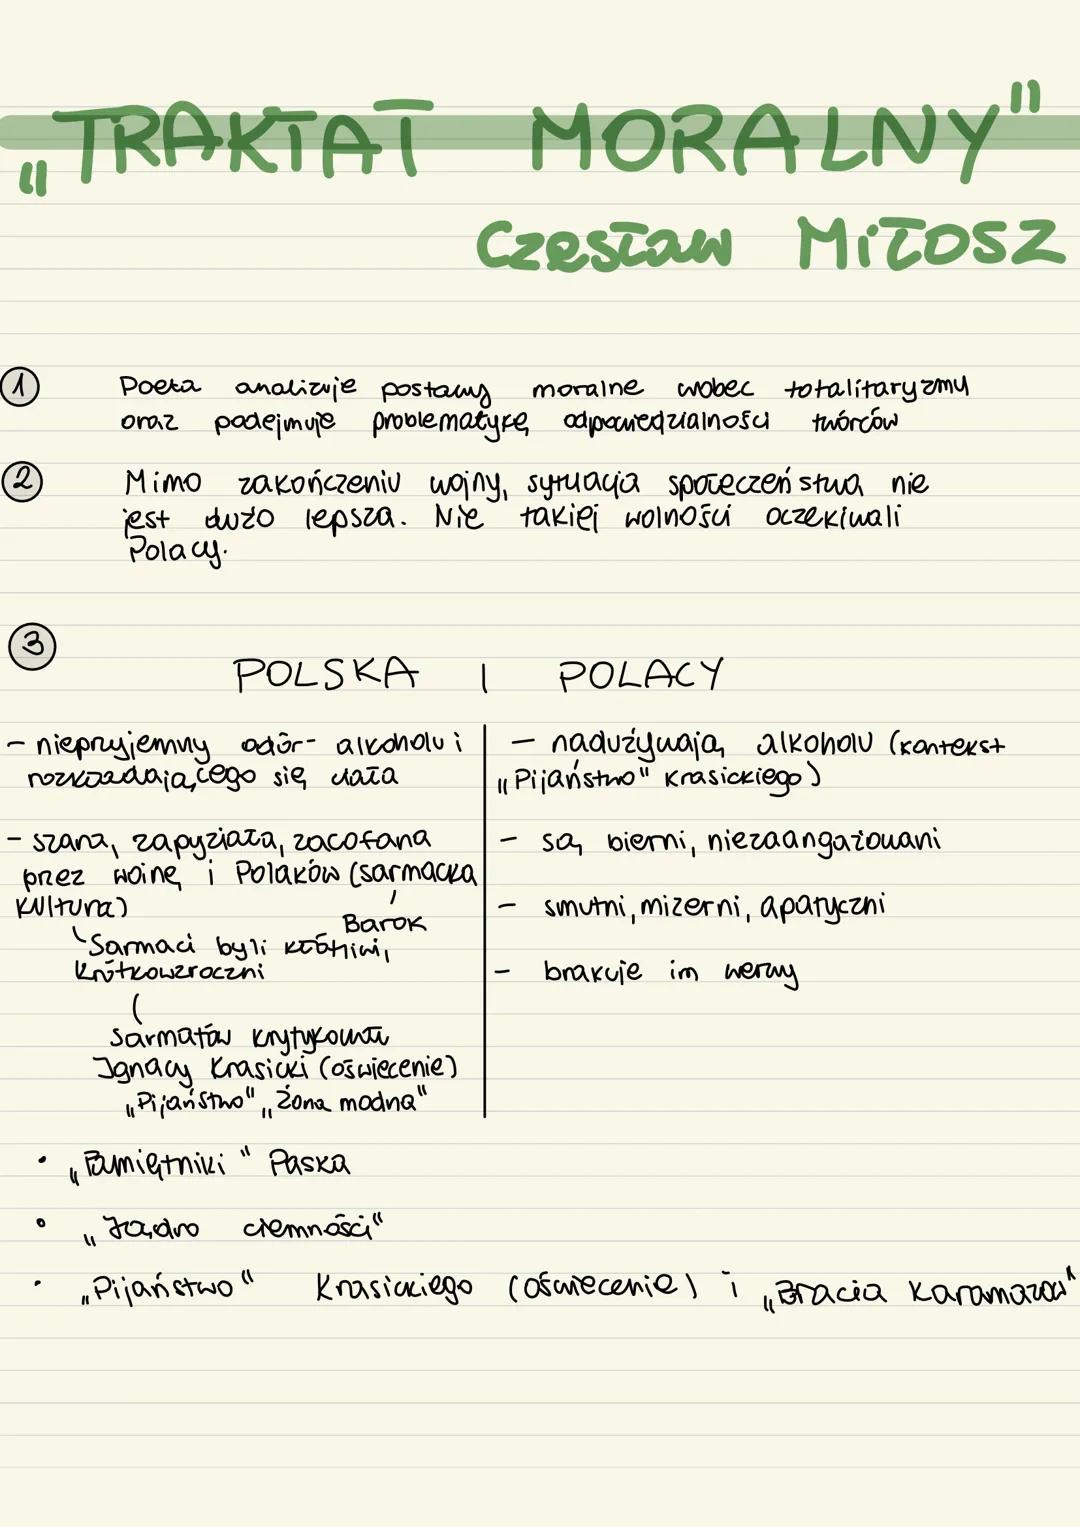 „TRAKTAT MORALNY"
Czesław Miłosz
1 Poeta analizuje postawy moralne wobec totalitaryzmu
oraz podejmuje problematykę odpowiedzialności twórców
2 Mimo zakończeniu wojny, sytuacja społeczeństwa nie
jest dużo lepsza. Nie takiej wolności oczekiwali
Polacy.
3
POLSKA I POLACY
- nieprzyjemny odór- alkoholu i
rozkładającego się ciała
- szara, zapyziała, zacofana
przez wojnę i Polaków (sarmacka
kultura)
Barok
Sarmaci byli kłótliwi,
krótkowzroczni
Sarmatów krytykował
Ignacy Krasicki (oświecenie)
„Pijaństwo" „Żona modna"
- nadużywają alkoholu (kontekst
„Pijaństwo" Krasickiego)
- są bierni, niezaangażowani
- smutni, mizerni, apatyczni
- brakuje im werwy
• „Pamiętniki" Paska
• „Jądro ciemności"
• „Pijaństwo" Krasickiego (oświecenie) i „Bracia Karamazow"